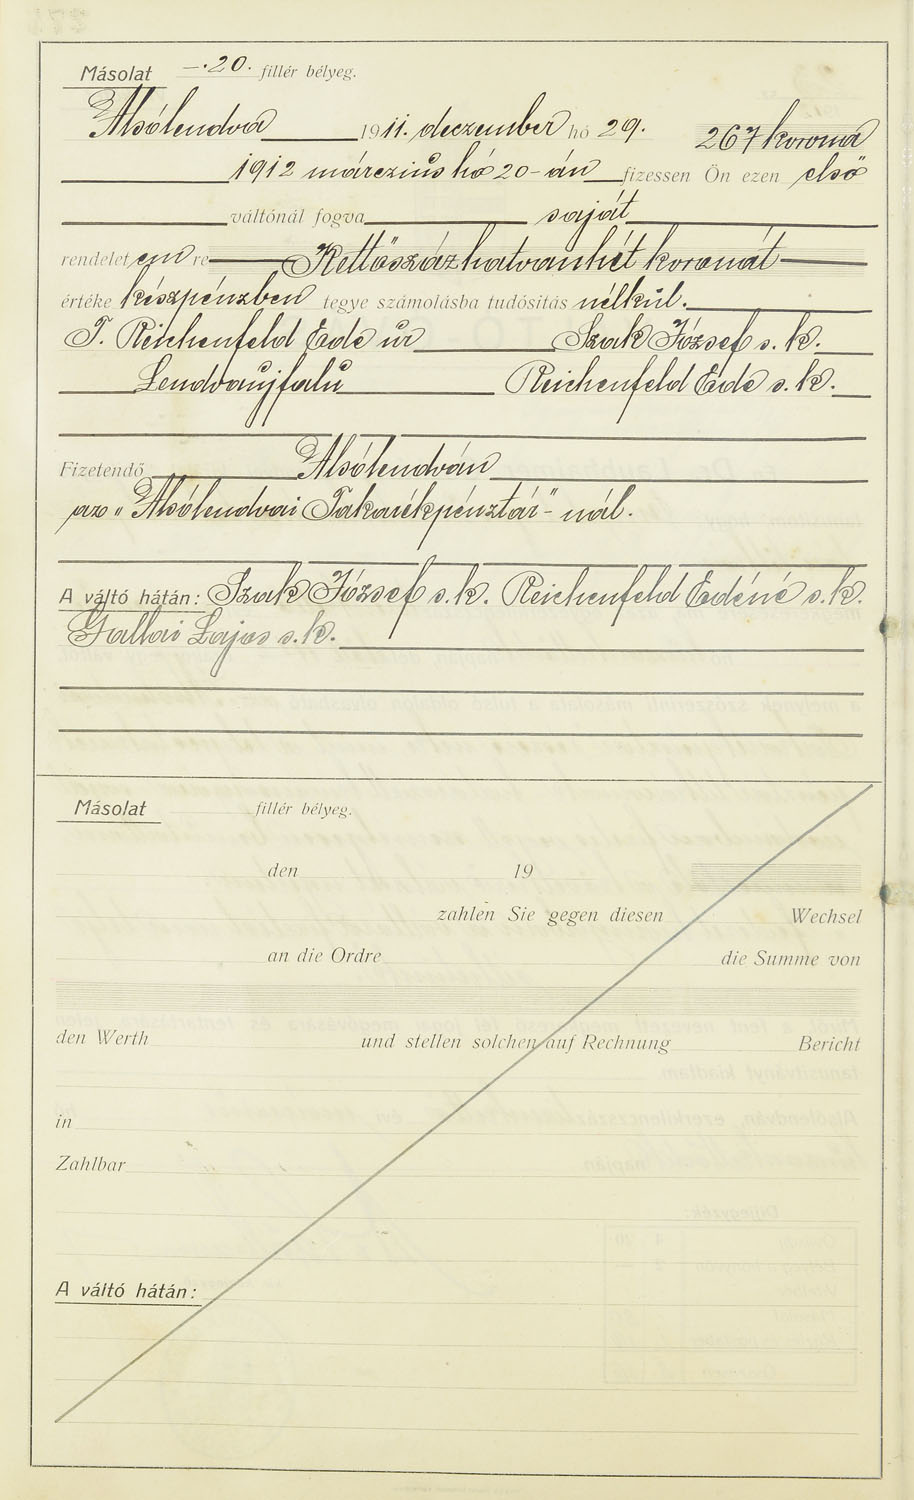 Másolat —·20. fillér bélyeg.
Alsólendva 1911. deczember hó 29. 267 korona
1912 márczius hó 20-án fizessen Ön ezen első
váltónál fogva saját
rendelet em re Kettőszázhatvanhét koronát
értéke készpénzben tegye számolásba tudósítás nélkül.
T. Reichenfeld Ede úr Szak József s. k.
Lendvaujfalu Reichenfeld Ede s. k.
Fizetendő Alsólendván
az „Alsólendvai Takarékpénztár"-nál.
A váltó hátán: Szak József s. k. Reichenfeld Edéné s. k.
Gallai Lajos s. k.
Másolat fillér bélyeg.
den 19
zahlen Sie gegen diesen Wechsel
an die Ordre die Summe von
den Werth und stellen solchen auf Rechnung Bericht
in
Zahlbar
A váltó hátán: